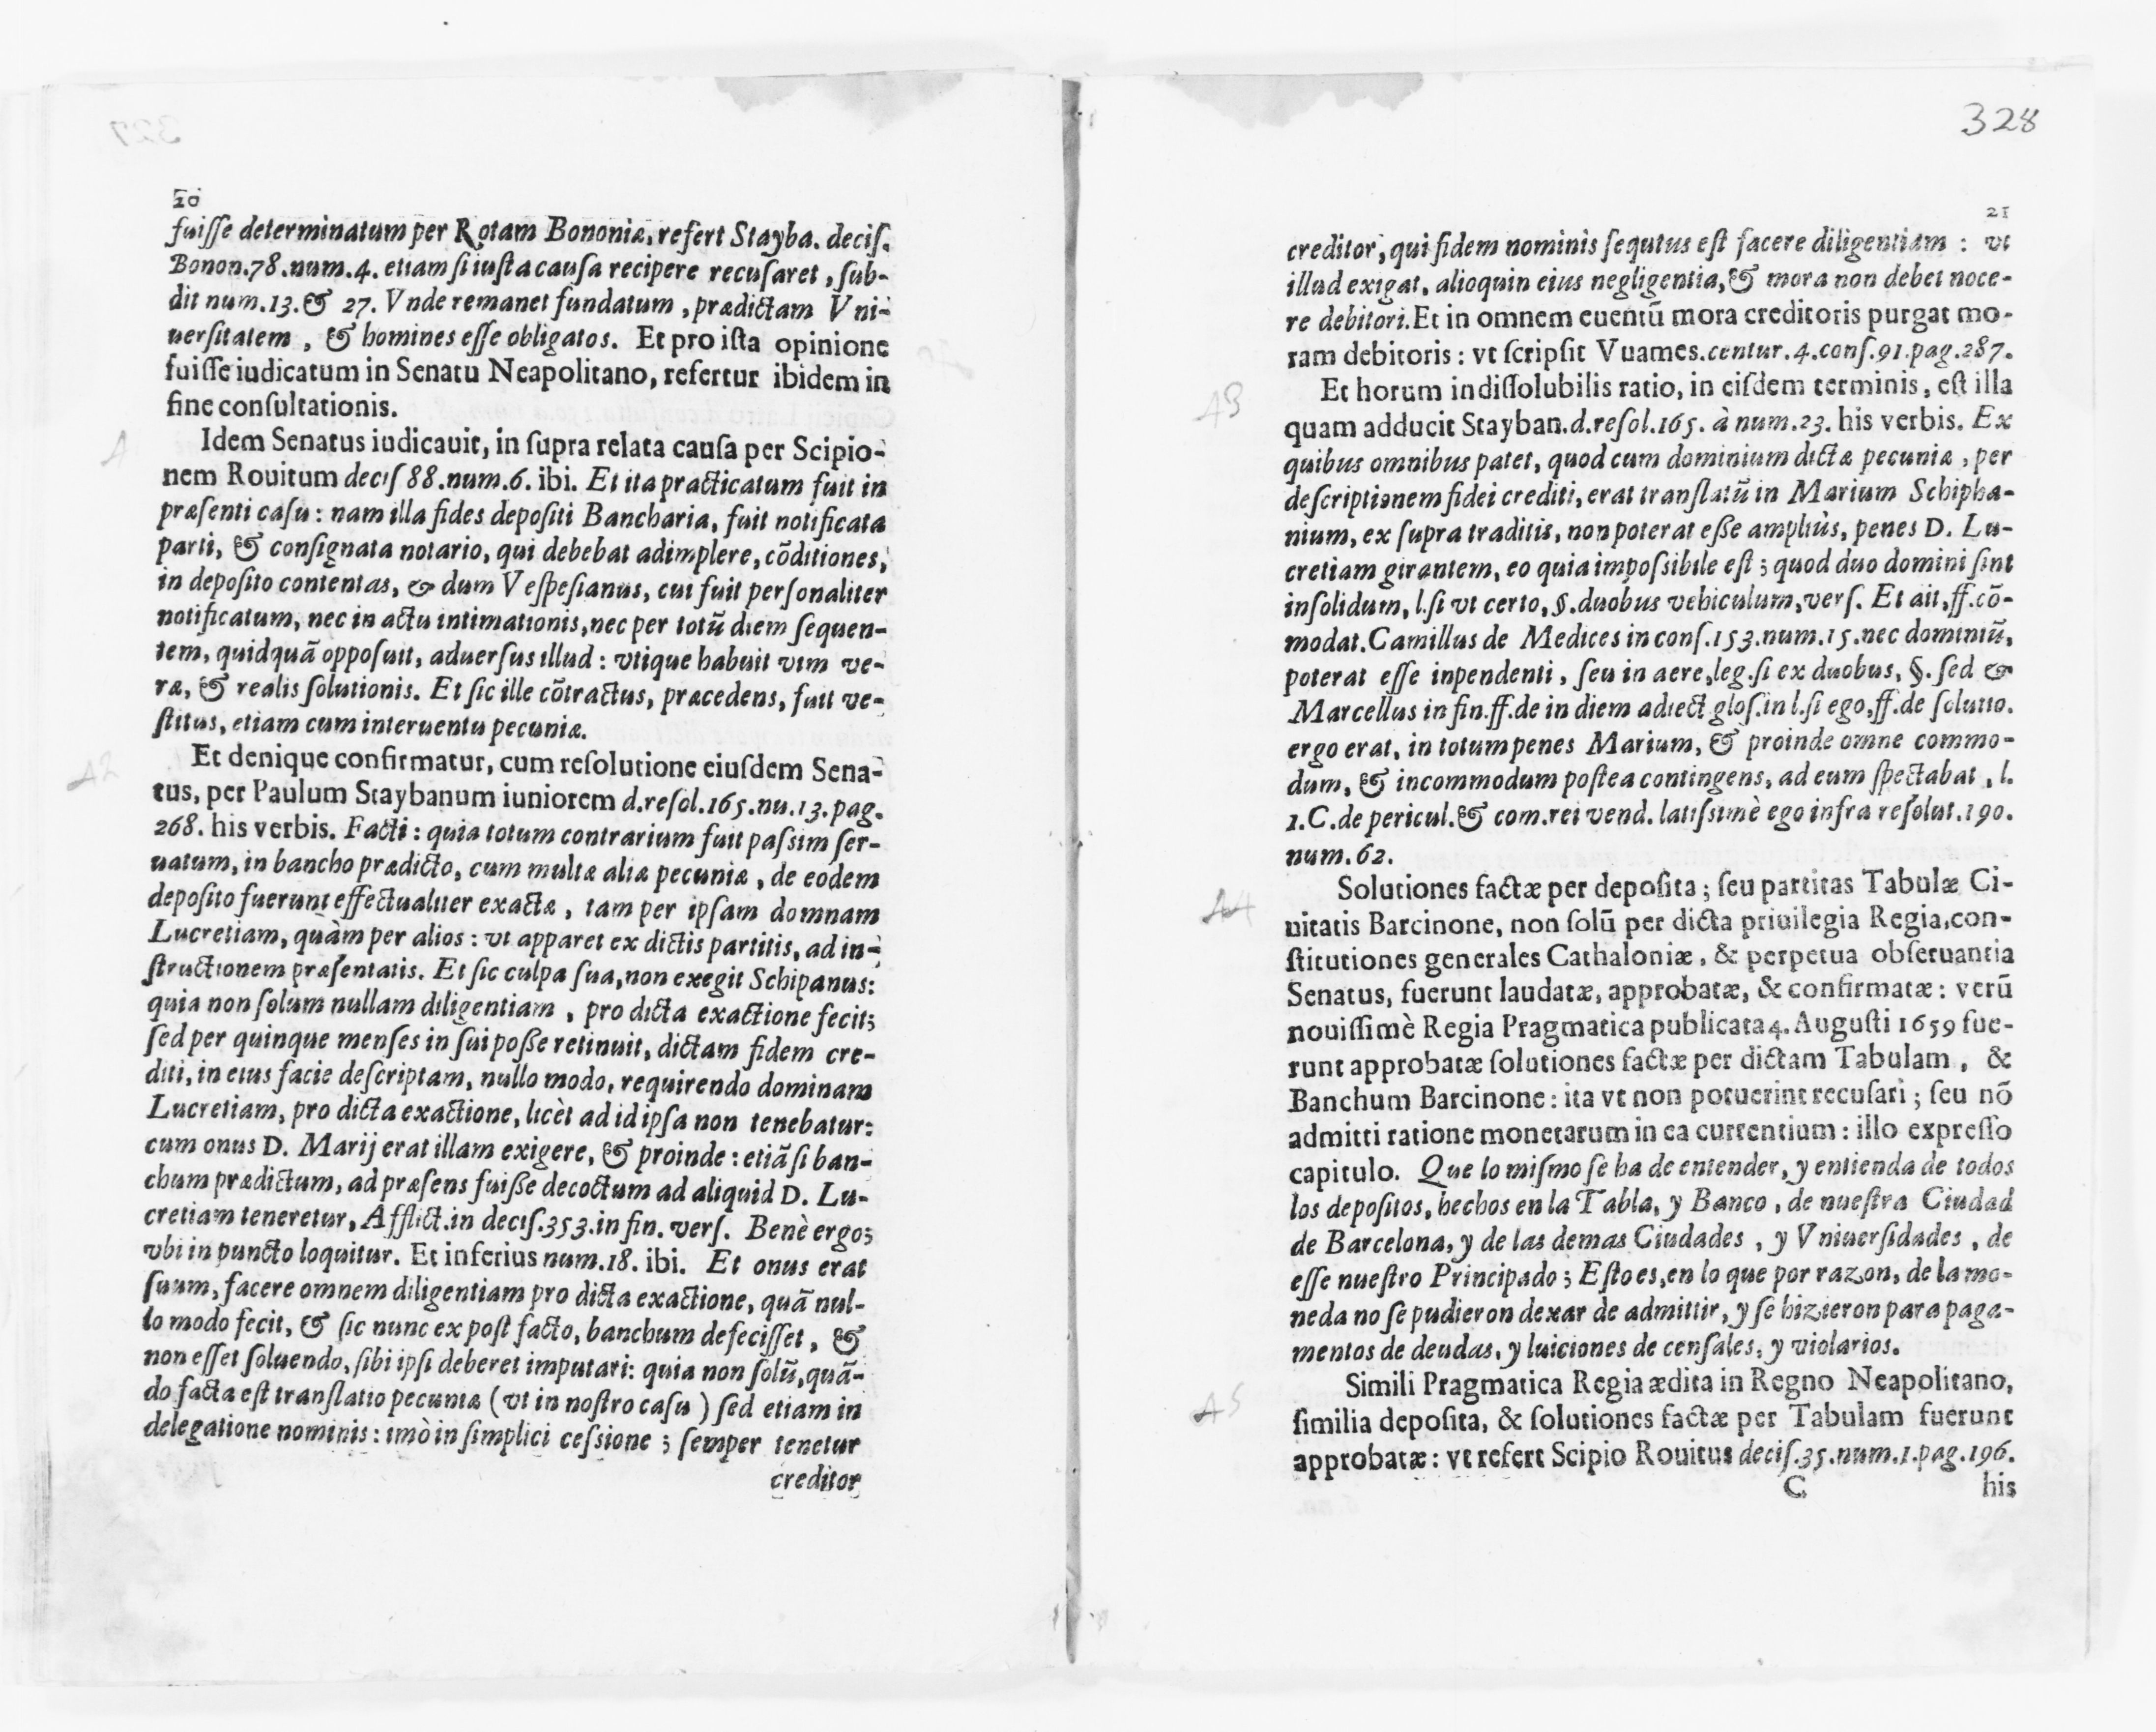 20
fuisse determinatum per Rotam Bononiæ, refert Stayba. decis.
Bonon.78.num.4. etiam si iusta causa recipere recusaret, sub-
dit num.13.& 27. Vnde remanet fundatum, prædictam Vni-
uersitatem, & homines esse obligatos. Et pro ista opinione
fuisse iudicatum in Senatu Neapolitano, refertur ibidem in
fine consultationis.
Idem Senatus iudicauit, in supra relata causa per Scipio-
nem Rouitum decis 88.num.6. ibi. Et ita practicatum fuit in
præsenti casu: nam illa fides depositi Bancharia, fuit notificata
parti, & consignata notario, qui debebat adimplere, cõditiones,
in deposito contentas, & dum Vespesianus, cui fuit personaliter
notificatum, nec in actu intimationis, nec per totũ diem sequen-
tem, quidquã opposuit, aduersus illud: vtique habuit vim ve-
ræ, & realis solutionis. Et sic ille cõtractus, præcedens, fuit ve-
stitus, etiam cum interuentu pecuniæ.
Et denique confirmatur, cum resolutione eiusdem Sena-
tus, per Paulum Staybanum iuniorem d.resol.165.nu.13.pag.
268. his verbis. Facti: quia totum contrarium fuit passim ser-
uatum, in bancho prædicto, cum multæ aliæ pecuniæ, de eodem
deposito fuerunt effectualiter exactæ, tam per ipsam domnam
Lucretiam, quàm per alios: vt apparet ex dictis partitis, ad in-
structionem præsentatis. Et sic culpa sua, non exegit Schipanus:
quia non solum nullam diligentiam, pro dicta exactione fecit;
sed per quinque menses in sui posse retinuit, dictam fidem cre-
diti, in eius facie descriptam, nullo modo, requirendo dominam
Lucretiam, pro dicta exactione, licèt ad id ipsa non tenebatur:
cum onus D. Marij erat illam exigere, & proinde: etiã si ban-
chum prædictum, ad præsens fuisse decoctum ad aliquid D. Lu-
cretiam teneretur, Afflict.in decis.353.in fin. vers. Benè ergo;
vbi in puncto loquitur. Et inferius num.18. ibi. Et onus erat
suum, facere omnem diligentiam pro dicta exactione, quã nul-
lo modo fecit, & sic nunc ex post facto, banchum defecisset, &
non esset soluendo, sibi ipsi deberet imputari: quia non solũ, quã-
do facta est translatio pecuniæ (vt in nostro casu) sed etiam in
delegatione nominis: imò in simplici cessione; semper tenetur
creditor
328
21
creditor, qui fidem nominis sequtus est facere diligentiam: vt
illud exigat, alioquin eius negligentia, & mora non debet noce-
re debitori. Et in omnem euentũ mora creditoris purgat mo-
ram debitoris: vt scripsit Vuames.centur.4.cons.91.pag.287.
A3
Et horum indissolubilis ratio, in eisdem terminis, est illa
quam adducit Stayban.d.resol.165. à num.23. his verbis. Ex
quibus omnibus patet, quod cum dominium dictæ pecuniæ, per
descriptionem fidei crediti, erat translatũ in Marium Schipha-
nium, ex supra traditis, non poterat esse ampliùs, penes D. Lu-
cretiam girantem, eo quia impossibile est; quod duo domini sint
insolidum, l.si vt certo, §.duobus vehiculum, vers. Et ait, ff.cõ-
modat. Camillus de Medices in cons.153.num.15.nec dominiũ,
poterat esse inpendenti, seu in aere, leg.si ex duobus, §. sed &
Marcellus in fin.ff.de in diem adiect glos.in l.si ego, ff.de soluto.
ergo erat, in totum penes Marium, & proinde omne commo-
dum, & incommodum postea contingens, ad eum spectabat, l.
1.C.de pericul.& com.rei vend. latissimè ego infra resolut.190.
num.62.
A4
Solutiones factæ per deposita; seu partitas Tabulæ Ci-
uitatis Barcinone, non solũ per dicta priuilegia Regia, con-
stitutiones generales Cathaloniæ, & perpetua obseruantia
Senatus, fuerunt laudatæ, approbatæ, & confirmatæ: verũ
nouissimè Regia Pragmatica publicata 4. Augusti 1659 fue-
runt approbatæ solutiones factæ per dictam Tabulam, &
Banchum Barcinone: ita vt non potuerint recusari; seu nõ
admitti ratione monetarum in ea currentium: illo expresso
capitulo. Que lo mismo se ha de entender, y entienda de todos
los depositos, hechos en la Tabla, y Banco, de nuestra Ciudad
de Barcelona, y de las demas Ciudades, y Vniuersidades, de
esse nuestro Principado; Esto es, en lo que por razon, de la mo-
neda no se pudieron dexar de admittir, y se hizieron para paga-
mentos de deudas, y luiciones de censales, y violarios.
A5
Simili Pragmatica Regia ædita in Regno Neapolitano,
similia deposita, & solutiones factæ per Tabulam fuerunt
approbatæ: vt refert Scipio Rouitus decis.35.num.1.pag.196.
C his